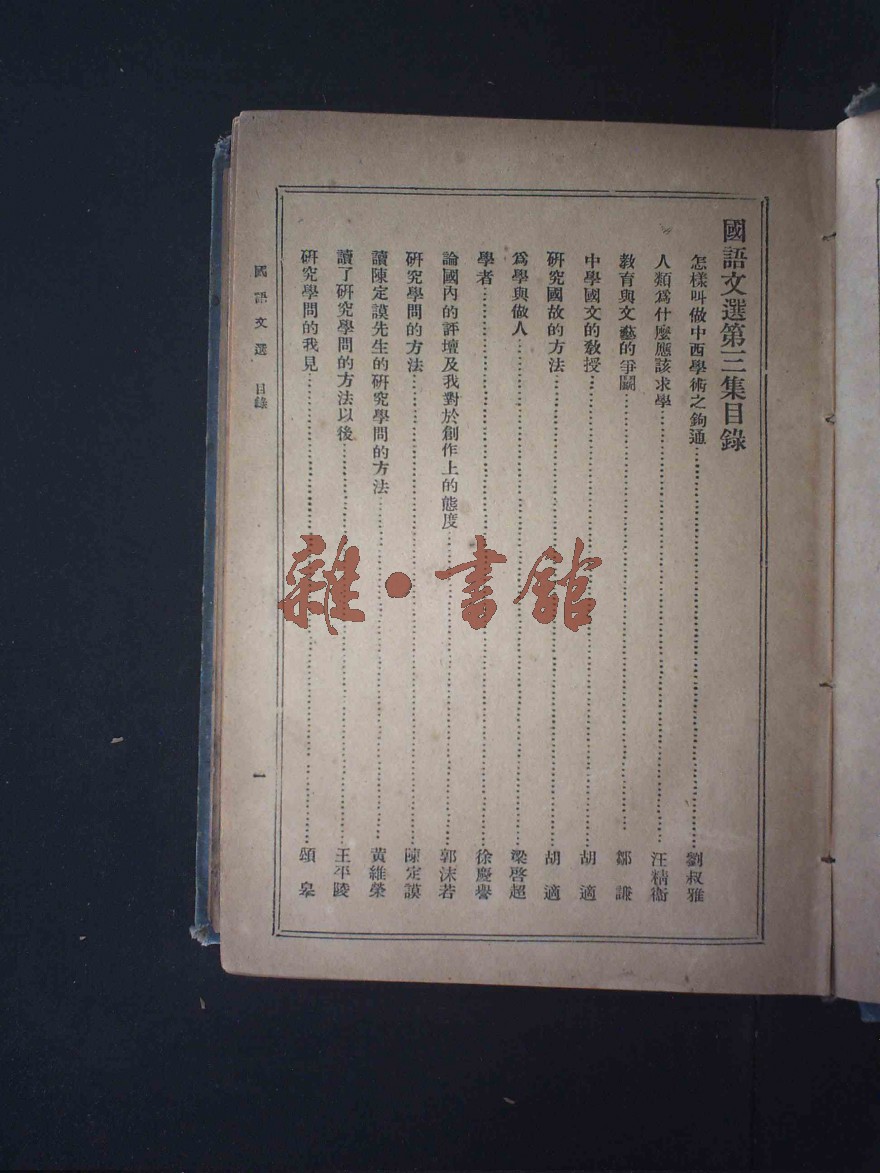 國語文選第三集目錄
怎樣叫做中西學術之鉤通……劉叔雅
人類爲什麼應該求學……汪精衞
教育與文藝的爭鬭……鄒謙
中學國文的敎授……胡適
研究國故的方法……胡適
爲學與做人……梁啓超
學者……徐慶譽
論國內的評壇及我對於創作上的態度……郭沫若
研究學問的方法……陳定謨
讀陳定謨先生的研究學問的方法……黃維榮
讀了研究學問的方法以後……王平陵
研究學問的我見……頌皋
國語文選 目錄
一
雜·書館